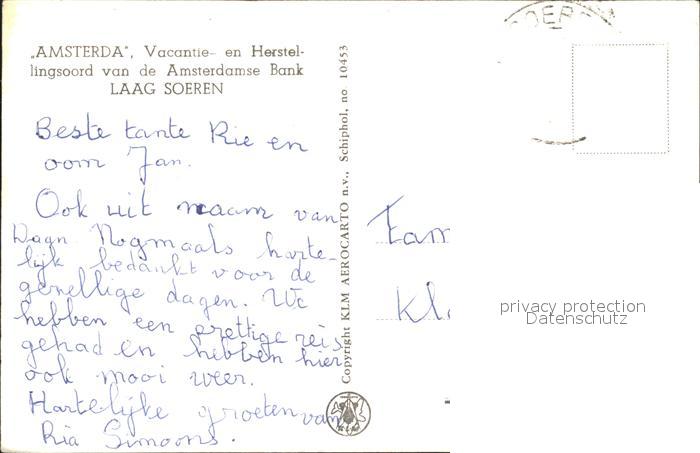 „AMSTERDA", Vacantie- en Herstel-
lingsoord van de Amsterdamse Bank
LAAG SOEREN
Beste tante Rie en
oom Jan.
Ook uit naam van
Daan Nogmaals harte-
lijk bedankt voor de
gezellige dagen. We
hebben een prettige reis
gehad en hebben hier
ook mooi weer.
Hartelijke groeten van
Ria Simoons.
Copyright KLM AEROCARTO n.v., Schiphol, no 10453
SOEREN
Fam
Kl
privacy protection
Datenschutz